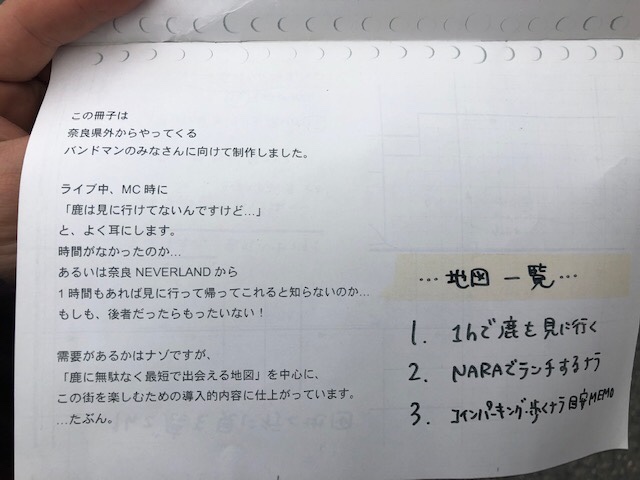 この冊子は
奈良県外からやってくる
バンドマンのみなさんに向けて制作しました。
ライブ中、MC時に
「鹿は見に行けてないんですけど…」
と、よく耳にします。
時間がなかったのか…
あるいは奈良NEVERLANDから
1時間もあれば見に行って帰ってこれると知らないのか…
もしも、後者だったらもったいない！
需要があるかはナゾですが、
「鹿に無駄なく最短で出会える地図」を中心に、
この街を楽しむための導入的内容に仕上がっています。
…たぶん。
…地図 一覧…
1. 1hで鹿を見に行く
2. NARAでランチするナラ
3. コインパーキング・歩くナラ目安MEMO